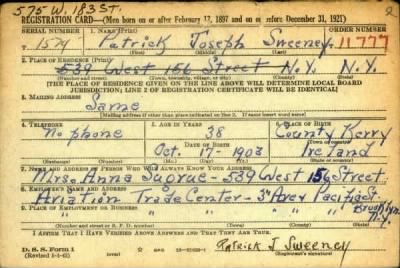 575 W. 183 ST.
REGISTRATION CARD—(Men born on or after February 17, 1897 and on or before December 31, 1921)
SERIAL NUMBER 1. NAME (Print) ORDER NUMBER
1579 Patrick Joseph Sweeney 11777
(First) (Middle) (Last)
2. PLACE OF RESIDENCE (Print)
539 West 156 Street N.Y. N.Y.
(Number and street) (Town, township, village, or city) (County) (State)
[THE PLACE OF RESIDENCE GIVEN ON THE LINE ABOVE WILL DETERMINE LOCAL BOARD
JURISDICTION; LINE 2 OF REGISTRATION CERTIFICATE WILL BE IDENTICAL]
3. MAILING ADDRESS
Same
[Mailing address if other than place indicated on line 2. If same insert word same]
4. TELEPHONE 5. AGE IN YEARS 6. PLACE OF BIRTH
No phone 38 County Kerry
DATE OF BIRTH (Town or county)
Oct. 17 - 1903 Ireland
(Exchange) (Number) (Mo.) (Day) (Yr.) (State or country)
7. NAME AND ADDRESS OF PERSON WHO WILL ALWAYS KNOW YOUR ADDRESS
Nurse Anna Sugrue - 539 West 156 Street
8. EMPLOYER'S NAME AND ADDRESS
Aviation Trade Center - 3rd Ave & Pacific St.
9. PLACE OF EMPLOYMENT OR BUSINESS Brooklyn
" " " " " N.Y.
(Number and street or R. F. D. number) (Town) (County) (State)
I AFFIRM THAT I HAVE VERIFIED ABOVE ANSWERS AND THAT THEY ARE TRUE.
D. S. S. Form 1 Patrick J Sweeney
(Revised 1-1-42) (Registrant's signature)